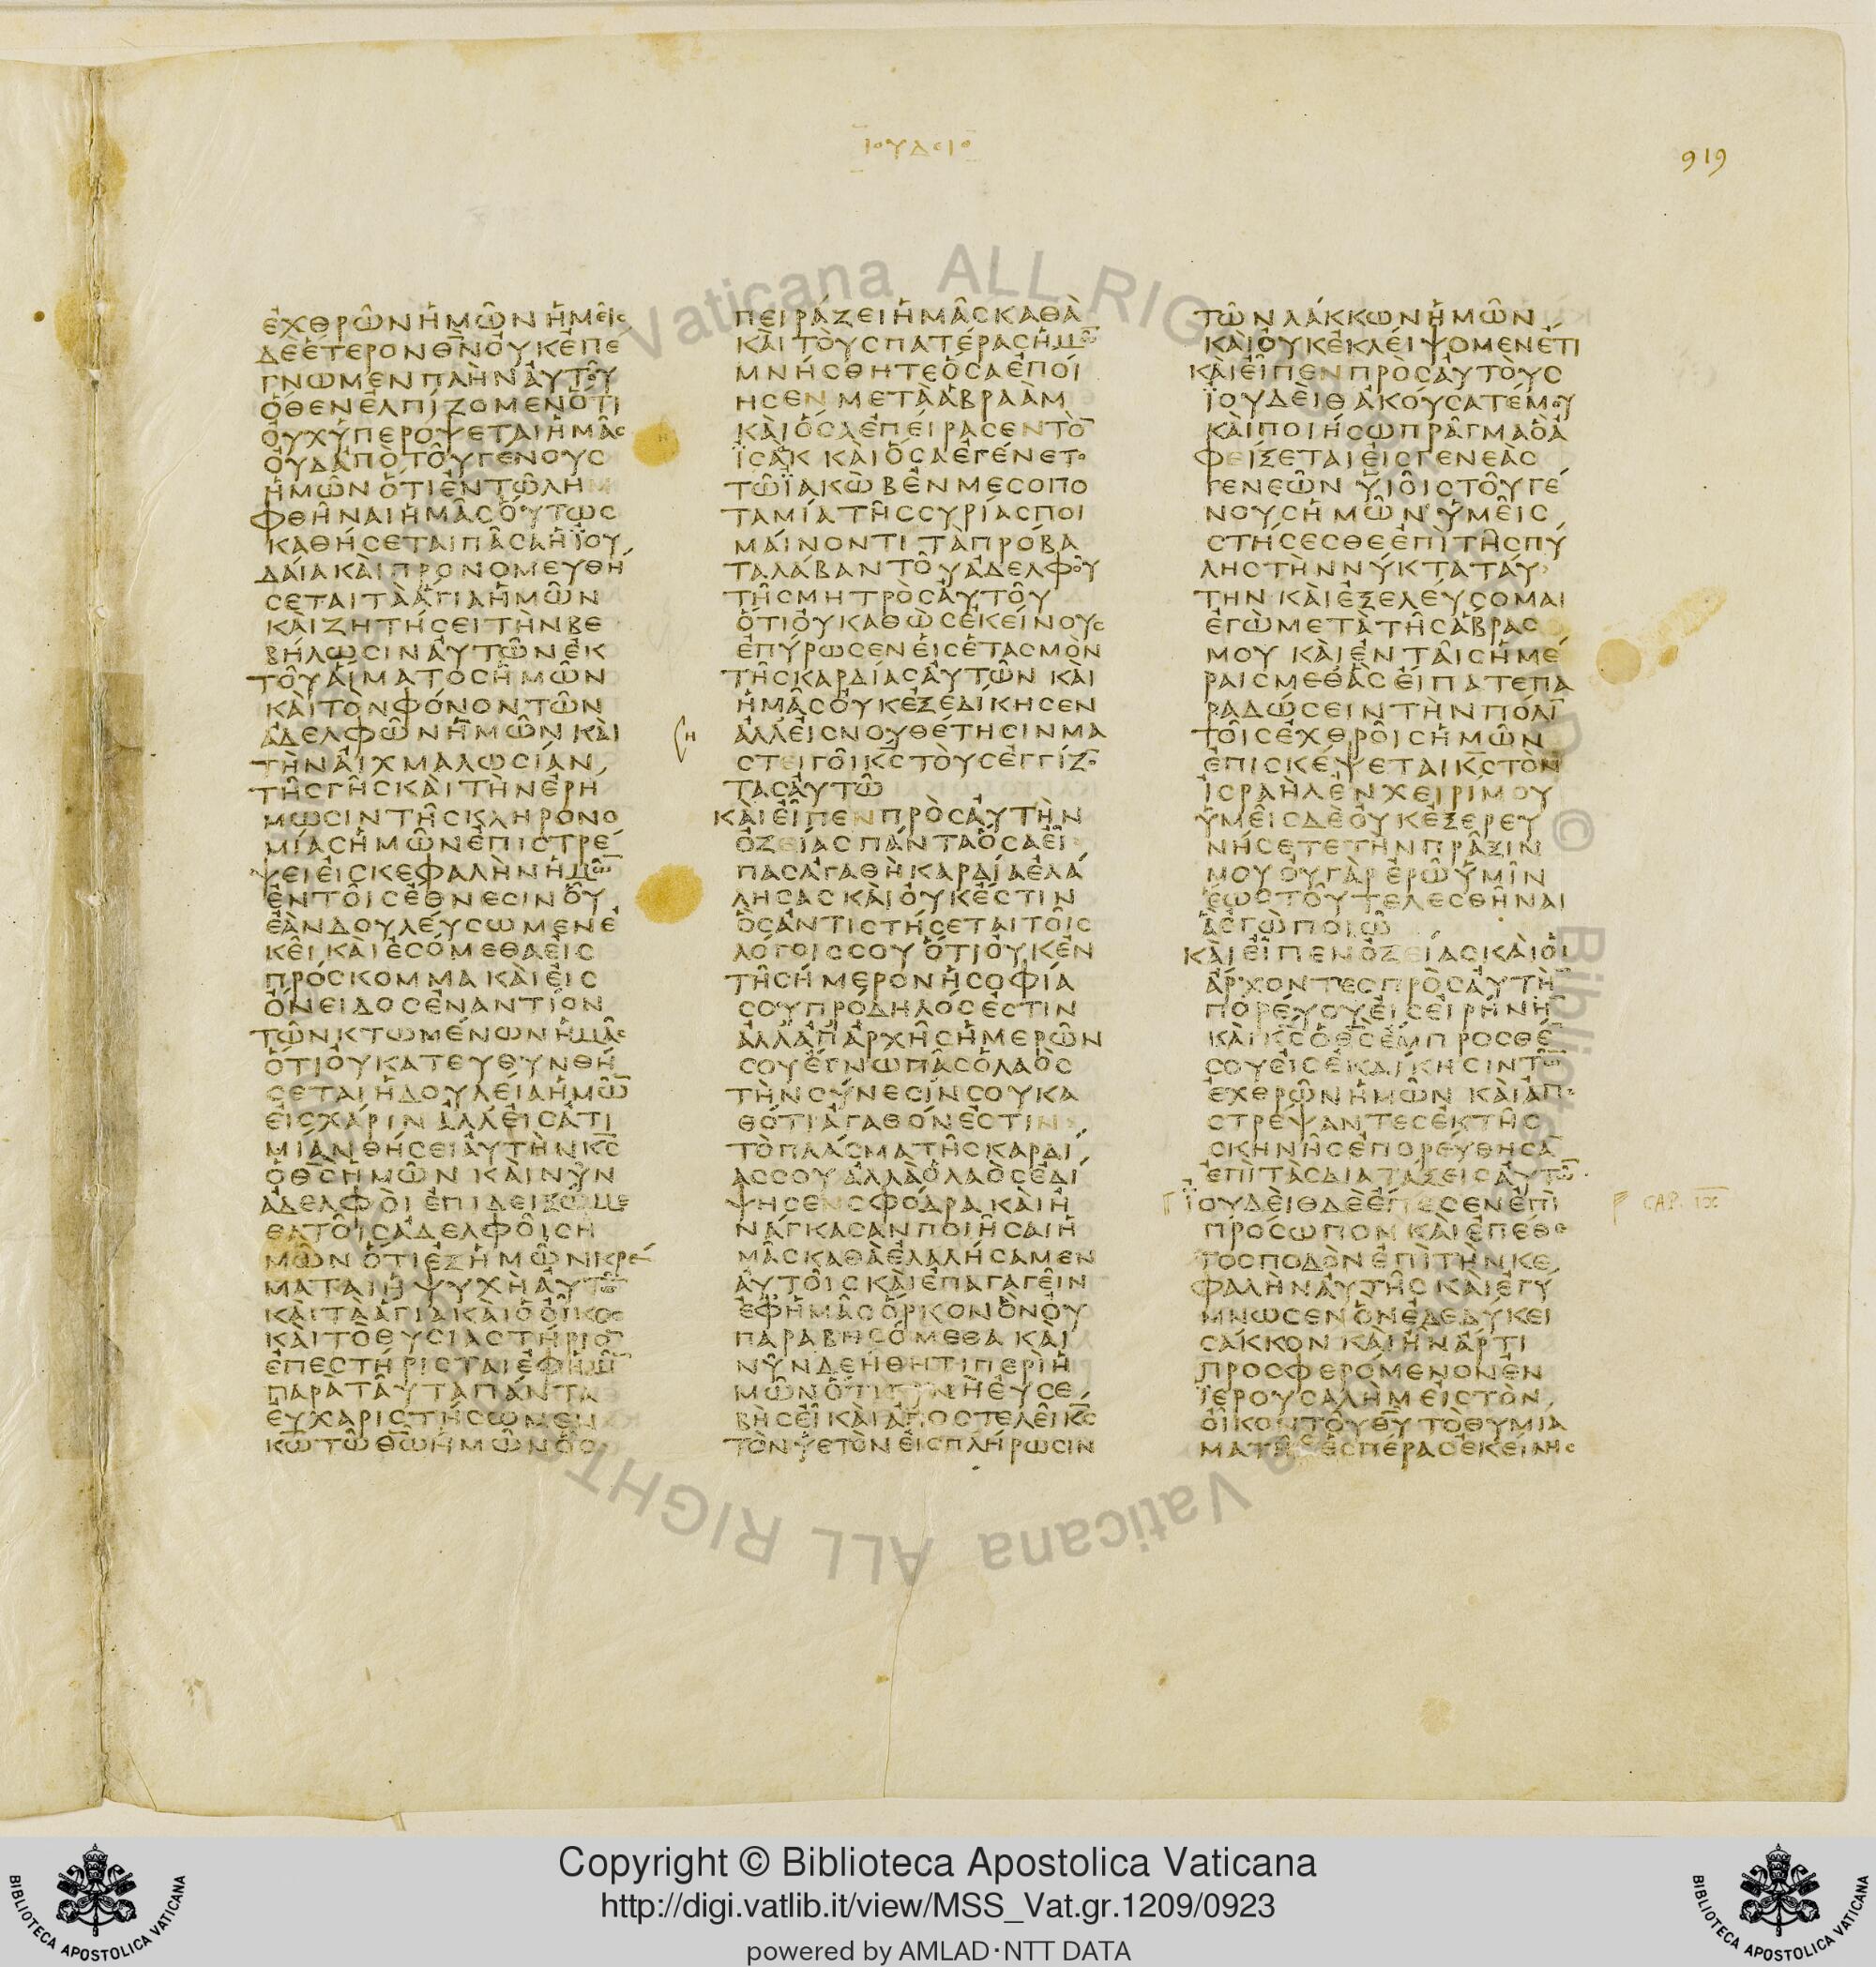 ΙΟΥΔΙΘ
919
ἐχθρῶν ἡμῶν ἡμεῖς
δὲ ἕτερον θ̅ν̅ οὐκ ἐπέ
γνωμεν πλὴν αὐτοῦ
ὅθεν ἐλπίζομεν ὅτι
οὐχ ὑπερόψεται ἡμᾶς
οὐδ᾽ ἀπὸ τοῦ γένους
ἡμῶν ὅτι ἐν τῷ λημ
φθῆναι ἡμᾶς οὕτως
καθήσεται πᾶσα ἡ Ἰου
δαία καὶ προνομευθή
σεται τὰ ἅγια ἡμῶν
καὶ ζητήσει τὴν βε
βήλωσιν αὐτῶν ἐκ
τοῦ αἵματος ἡμῶν
καὶ τὸν φόνον τῶν
ἀδελφῶν ἡμῶν καὶ
τὴν αἰχμαλωσίαν
τῆς γῆς καὶ τὴν ἐρή
μωσιν τῆς κληρονο
μίας ἡμῶν ἐπιστρέ
ψει εἰς κεφαλὴν ἡμῶ̅
ἐν τοῖς ἔθνεσιν οὗ
ἐὰν δουλεύσωμεν ἐ
κεῖ καὶ ἐσόμεθα εἰς
πρόσκομμα καὶ εἰς
ὄνειδος ἐναντίον
τῶν κτωμένων ἡμᾶς
ὅτι οὐ κατευθυνθή
σεται ἡ δουλεία ἡμῶ̅
εἰς χάριν ἀλλ᾽ εἰς ἀτι
μίαν θήσει αὐτὴν κ̅ς̅
ὁ θ̅ς̅ ἡμῶν καὶ νῦν
ἀδελφοὶ ἐπιδειξώμε
θα τοῖς ἀδελφοῖς ἡ
μῶν ὅτι ἐξ ἡμῶν κρέ
μαται ἡ ψυχὴ αὐτῶ̅
καὶ τὰ ἅγια καὶ ὁ οἶκος
καὶ τὸ θυσιαστήριο̅
ἐπεστήρισται ἐφ᾽ ἡμῖ̅
παρὰ ταῦτα πάντα
εὐχαριστήσωμεν
κ̅ω̅ τῷ θ̅ω̅ ἡμῶν ὃς
πειράζει ἡμᾶς καθὰ
καὶ τοὺς πατέρας ἡμῶ̅
μνήσθητε ὅσα ἐποί
ησεν μετὰ Ἀβραὰμ
καὶ ὅσα ἐπείρασεν τὸ̅
Ἰσὰκ καὶ ὅσα ἐγένετο
τῷ Ἰακὼβ ἐν Μεσοπο
ταμίᾳ τῆς Συρίας ποι
μαίνοντι τὰ πρόβα
τα Λαβὰν τοῦ ἀδελφοῦ
τῆς μητρὸς αὐτοῦ
ὅτι οὐ καθὼς ἐκείνους
ἐπύρωσεν εἰς ἐτασμὸν
τῆς καρδίας αὐτῶν καὶ
ἡμᾶς οὐκ ἐξεδίκησεν
Η
ἀλλ᾽ εἰς νουθέτησιν μα
στιγοῖ κ̅ς̅ τοὺς ἐγγίζο̅
τας αὐτῷ
καὶ εἶπεν πρὸς αὐτὴν
Ὀζείας πάντα ὅσα εἶ
πας ἀγαθῇ καρδίᾳ ἐλά
λησας καὶ οὐκ ἔστιν
ὃς ἀντιστήσεται τοῖς
λόγοις σου ὅτι οὐκ ἐν
τῇ σήμερον ἡ σοφία
σου πρόδηλός ἐστιν
ἀλλ᾽ ἀπ᾽ ἀρχῆς ἡμερῶν
σου ἔγνω πᾶς ὁ λαὸς
τὴν σύνεσίν σου κα
θότι ἀγαθόν ἐστιν
τὸ πλάσμα τῆς καρδί
ας σου ἀλλὰ ὁ λαὸς ἐδί
ψησεν σφόδρα καὶ ἠ
νάγκασαν ποιῆσαι ἡ
μᾶς καθὰ ἐλαλήσαμεν
αὐτοῖς καὶ ἐπαγαγεῖν
ἐφ᾽ ἡμᾶς ὅρκον ὃν οὐ
παραβησόμεθα καὶ
νῦν δεήθητι περὶ ἡ
μῶν ὅτι γυνὴ εὐσε
βὴς εἶ καὶ ἀποστελεῖ κ̅ς̅
τὸν ὑετὸν εἰς πλήρωσιν
τῶν λάκκων ἡμῶν
καὶ οὐκ ἐκλείψομεν ἔτι
καὶ εἶπεν πρὸς αὐτοὺς
Ἰουδεὶθ ἀκούσατέ μου
καὶ ποιήσω πρᾶγμα ὃ ἀ
φίξεται εἰς γενεὰς
γενεῶν υἱοῖς τοῦ γέ
νους ἡμῶν ὑμεῖς
στήσεσθε ἐπὶ τῆς πύ
λης τὴν νύκτα ταύ
την καὶ ἐξελεύσομαι
ἐγὼ μετὰ τῆς ἅβρας
μου καὶ ἐν ταῖς ἡμέ
ραις μεθ᾽ ἃς εἴπατε πα
ραδώσειν τὴν πόλι̅
τοῖς ἐχθροῖς ἡμῶν
ἐπισκέψεται κ̅ς̅ τὸν
Ἰσραὴλ ἐν χειρί μου
ὑμεῖς δὲ οὐκ ἐξερευ
νήσετε τὴν πρᾶξιν
μου οὐ γὰρ ἐρῶ ὑμῖν
ἕως τοῦ τελεσθῆναι
ἃ ἐγὼ ποιῶ
καὶ εἶπεν Ὀζείας καὶ οἱ
ἄρχοντες πρὸς αὐτή̅
πορεύου εἰς εἰρήνη̅
καὶ κ̅ς̅ ὁ θ̅ς̅ ἔμπροσθέ̅
σου εἰς ἐκδίκησιν τῶ̅
ἐχθρῶν ἡμῶν καὶ ἀπο
στρέψαντες ἐκ τῆς
σκηνῆς ἐπορεύθησα̅
ἐπὶ τὰς διατάξεις αὐτῶ̅
Ἰουδεὶθ δὲ ἔπεσεν ἐπὶ
CAP. IX
πρόσωπον καὶ ἐπέθε
το σποδὸν ἐπὶ τὴν κε
φαλὴν αὐτῆς καὶ ἐγύ
μνωσεν ὃν ἐδεδύκει
σάκκον καὶ ἦν ἄρτι
προσφερόμενον ἐν
Ἰερουσαλὴμ εἰς τὸν
οἶκον τοῦ θ̅υ̅ τὸ θυμία
μα τῆς ἑσπέρας ἐκείνης
Copyright © Biblioteca Apostolica Vaticana
http://digi.vatlib.it/view/MSS_Vat.gr.1209/0923
powered by AMLAD·NTT DATA
BIBLIOTECA APOSTOLICA VATICANA
BIBLIOTECA APOSTOLICA VATICANA